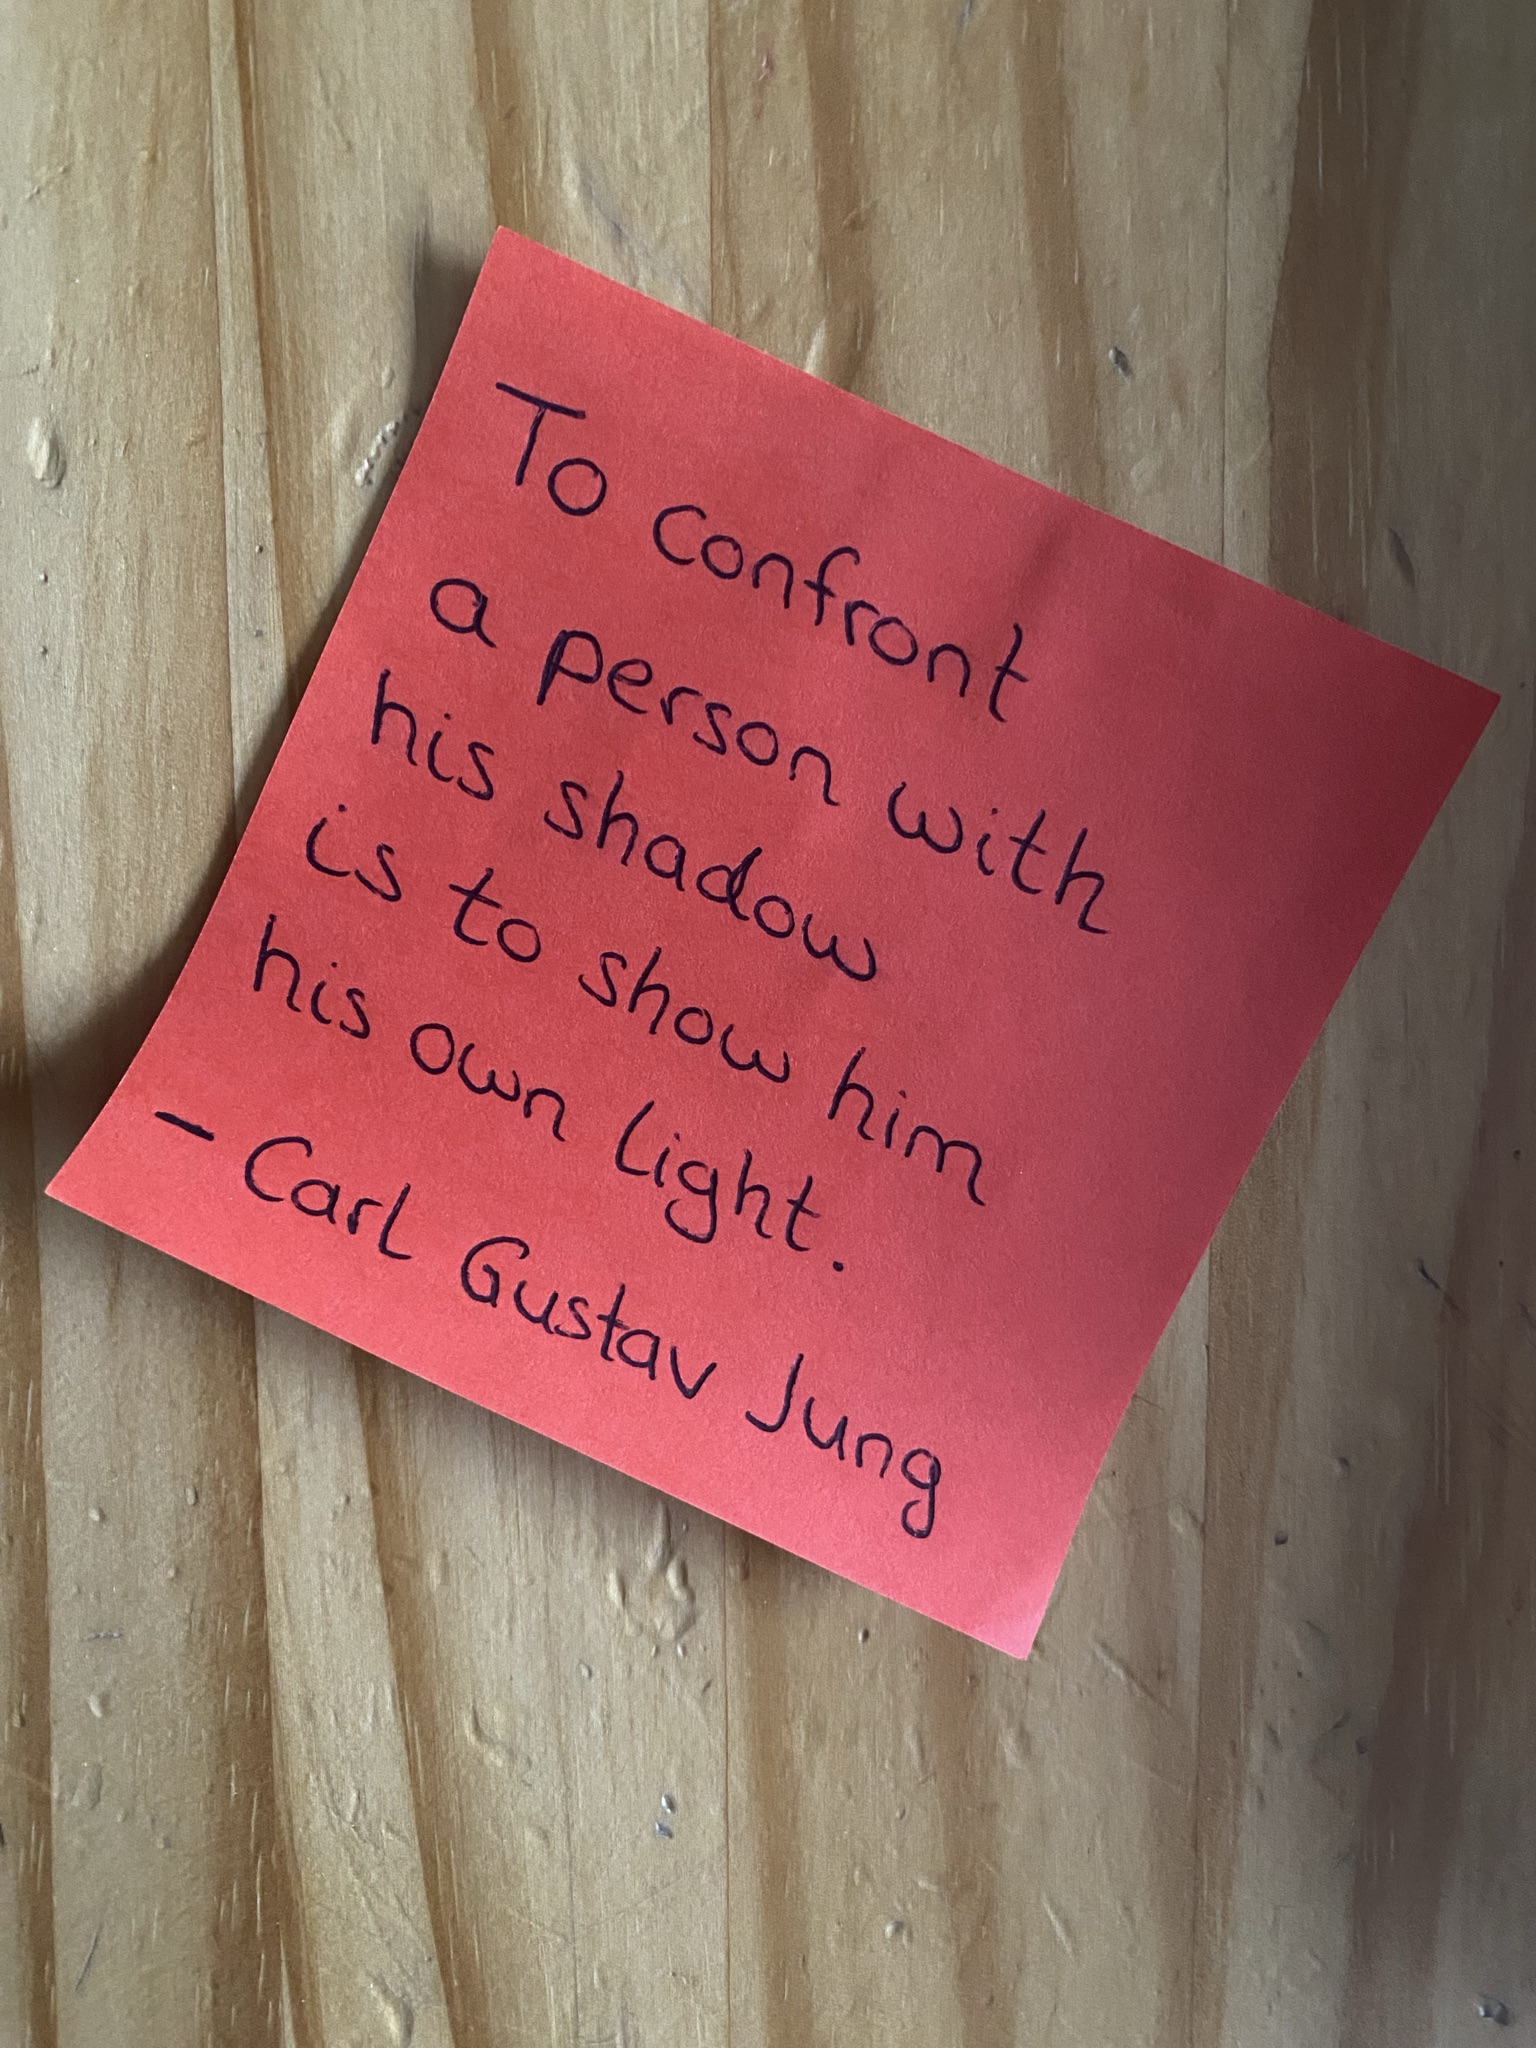 To confront
a person with
his shadow
is to show him
his own light.
- Carl Gustav Jung